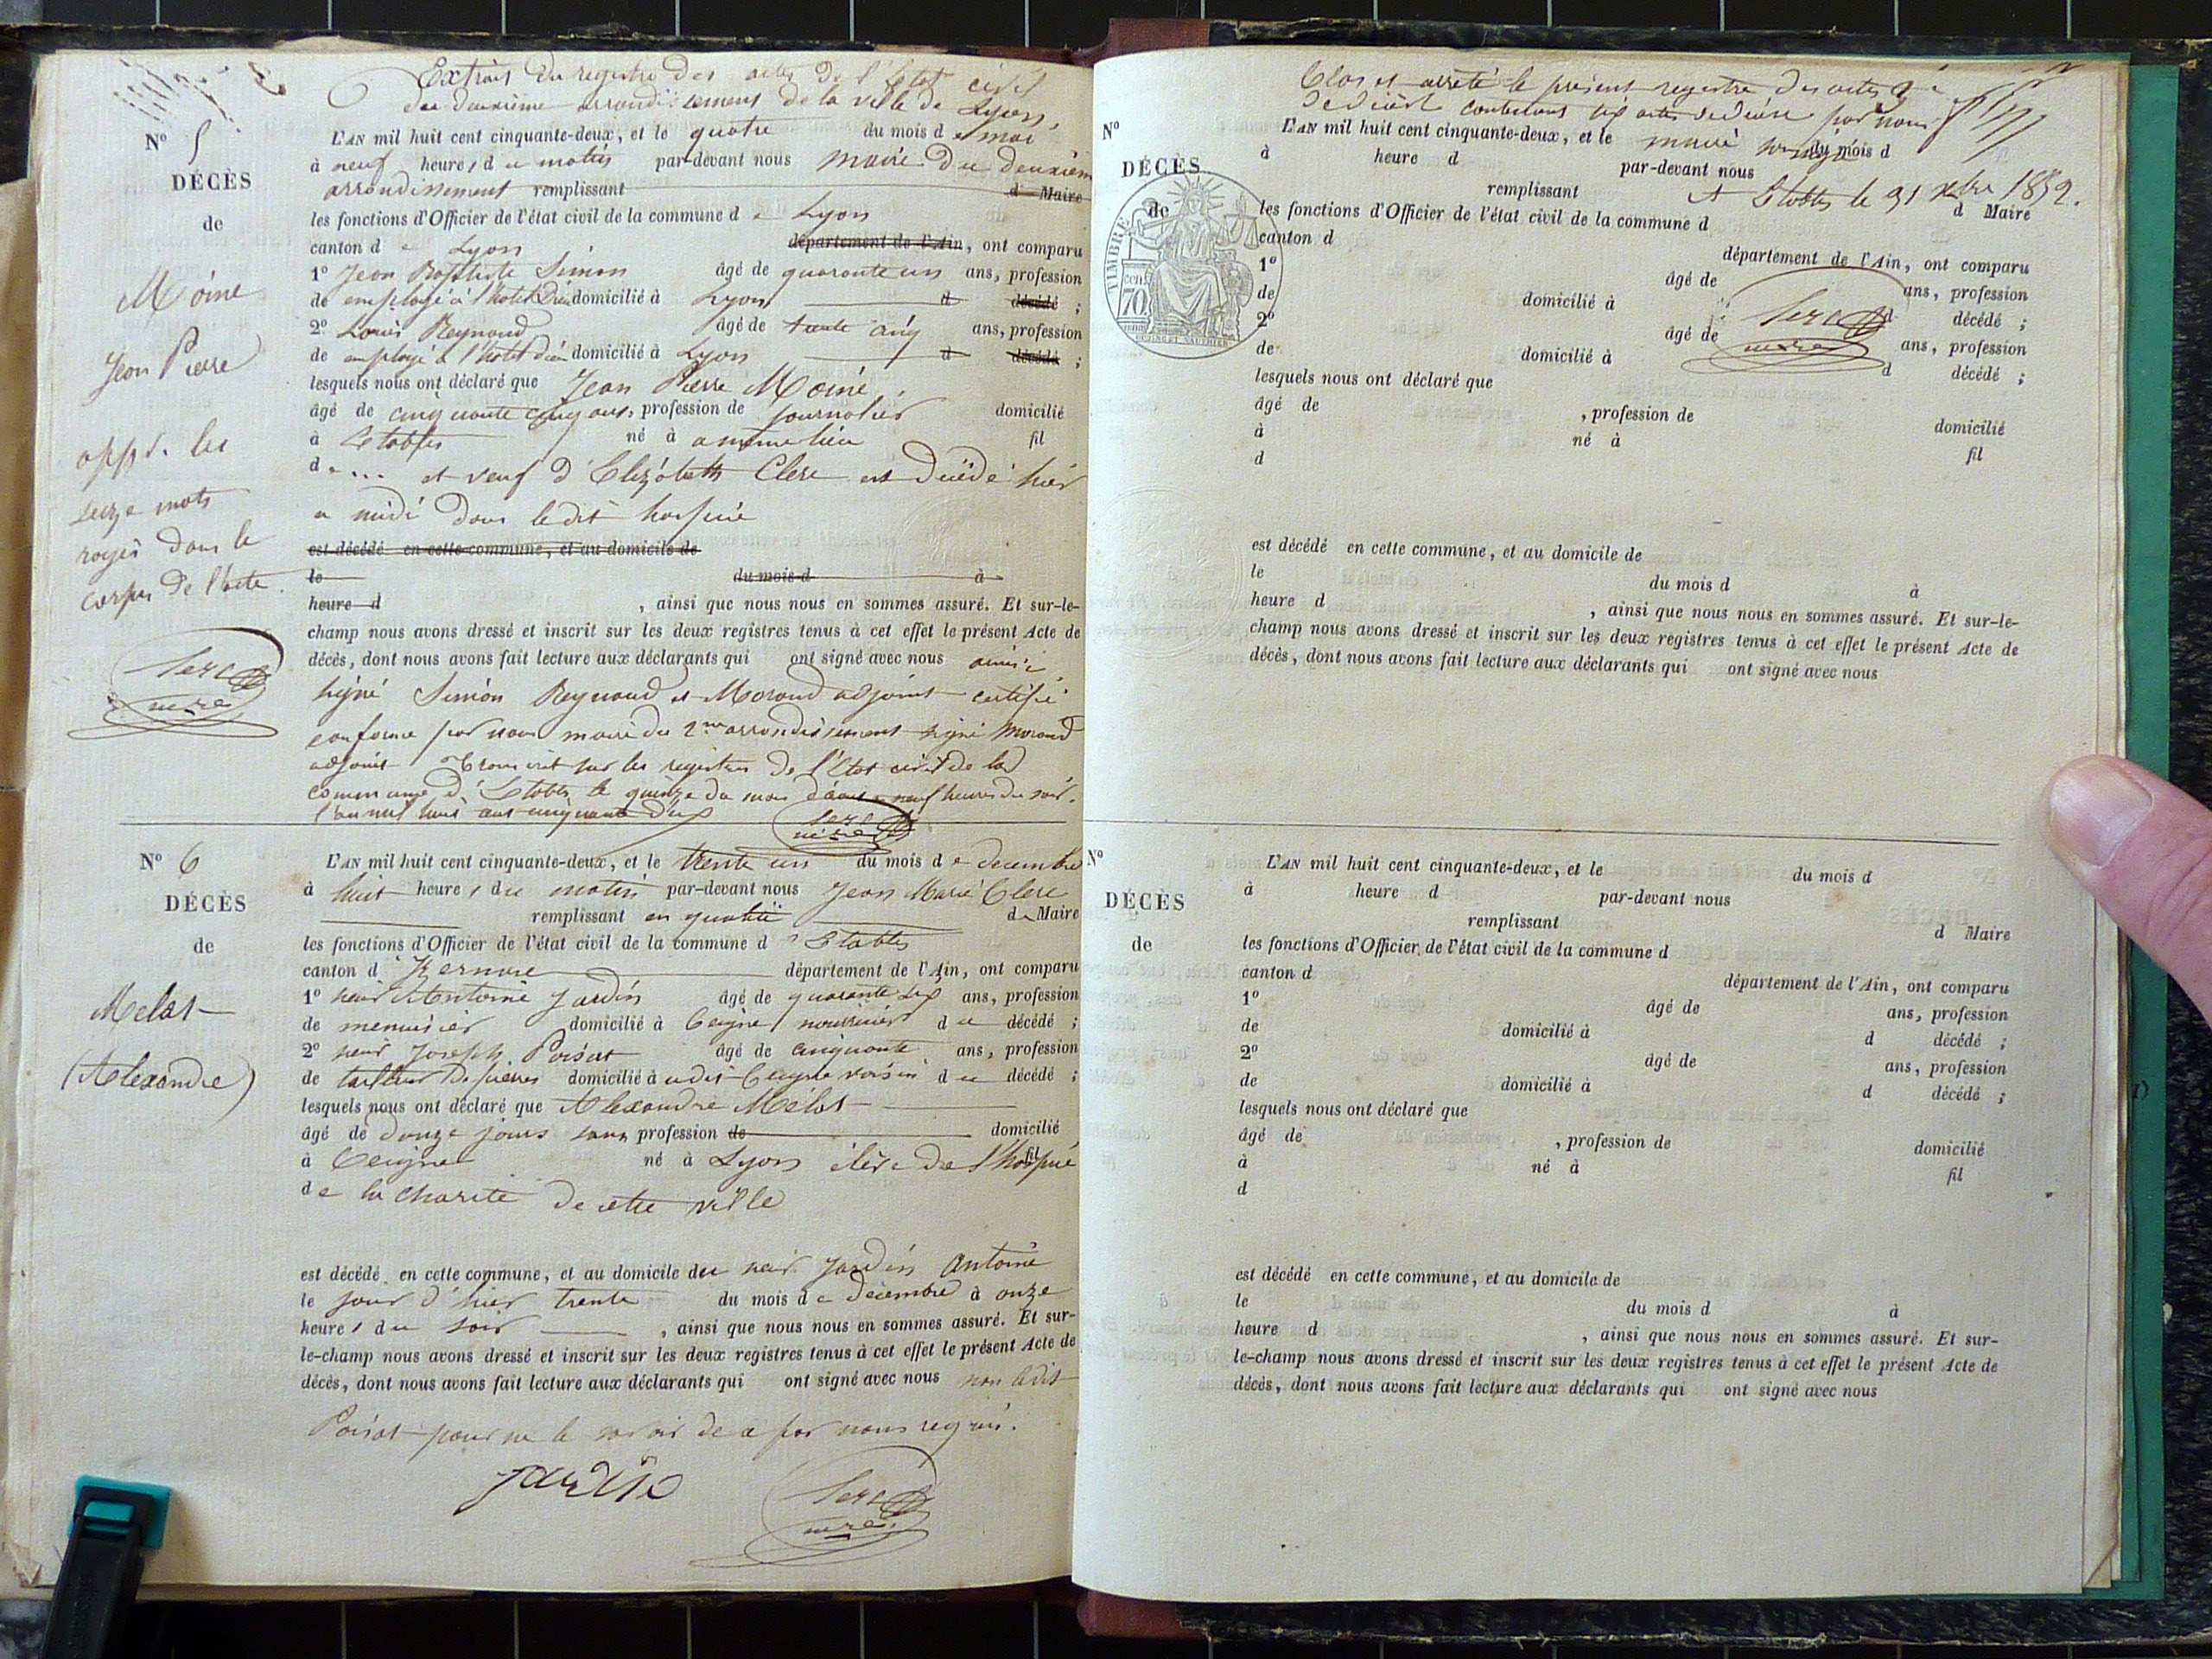 Extrait du registre des actes de l'Etat civil
du deuxième arrondissement de la ville de Lyon,
N° 5
L'AN mil huit cent cinquante-deux, et le quatre du mois de mai
à neuf heures du matin par-devant nous maire du deuxième
DÉCÈS
arrondissement remplissant d Maire
de
les fonctions d'Officier de l'état civil de la commune de Lyon
canton de Lyon département de l'Ain, ont comparu
1° Jean Baptiste Simon âgé de quarante un ans, profession
Moine
de employé à l'hotel Dieu domicilié à Lyon d décédé ;
2° Louis Reynaud âgé de trente cinq ans, profession
Jean Pierre
de employé à l'hotel Dieu domicilié à Lyon d décédé ;
lesquels nous ont déclaré que Jean Pierre Moine,
âgé de cinquante cinq ans, profession de journalier domicilié
à Etables né à a même lieu fil
de ... et veuf d'Elizabeth Clerc est décédé hier
a midi dans le dit hospice
est décédé en cette commune, et au domicile de
le du mois d à
heure d , ainsi que nous nous en sommes assuré. Et sur-le-
champ nous avons dressé et inscrit sur les deux registres tenus à cet effet le présent Acte de
décès, dont nous avons fait lecture aux déclarants qui ont signé avec nous ainsi
signé Simon Reynaud et Morand adjoint certifié
conforme par nous maire du 2me arrondissement signé Morand
adjoint Transcrit sur les registres de l'Etat civil de la
commune d'Etables le quinze du mois d'aout a neuf heures du soir.
l'an mil huit cent cinquante deux
appr. les
seize mots
rayés dans le
corps de l'acte.
Clerc
maire
Clerc
maire
N° 6
L'AN mil huit cent cinquante-deux, et le trente un du mois de decembre
à huit heures du matin par-devant nous Jean Marie Clerc
DÉCÈS
remplissant en qualité de Maire
de
les fonctions d'Officier de l'état civil de la commune d'Etables
canton d département de l'Ain, ont comparu
1° Antoine Jardin âgé de quarante six ans, profession
Melat
de menuisier domicilié à Ceigne nourricier du décédé ;
2° Joseph Poisat âgé de cinquante ans, profession
(Alexandre)
de tailleur de pierres domicilié à udit Ceigne voisin du décédé ;
lesquels nous ont déclaré que Alexandre Melat
âgé de douze jours sans profession de domicilié
à Ceigne né à Lyon élève de l'hospice fil
de la charité de cette ville
est décédé en cette commune, et au domicile du Jardin Antoine
le jour d'hier trente du mois de décembre à onze
heures du soir , ainsi que nous nous en sommes assuré. Et sur-
le-champ nous avons dressé et inscrit sur les deux registres tenus à cet effet le présent Acte de
décès, dont nous avons fait lecture aux déclarants qui ont signé avec nous non ledit
Poisat pour ne le savoir de ce par nous requis.
Jardin
Clerc
maire
Clos et arreté le présent registre des actes de
décès contenant six actes de décès par nous
N°
L'AN mil huit cent cinquante-deux, et le maire du mois d
à heure d par-devant nous
DÉCÈS
A Etables le 31 xbre 1852.
remplissant d Maire
de
les fonctions d'Officier de l'état civil de la commune d
TIMBRE
70 cent
canton d département de l'Ain, ont comparu
1° âgé de ans, profession
de domicilié à d décédé ;
2° âgé de ans, profession
de domicilié à d décédé ;
Clerc
maire
lesquels nous ont déclaré que
âgé de , profession de domicilié
à né à fil
d
est décédé en cette commune, et au domicile de
le du mois d à
heure d , ainsi que nous nous en sommes assuré. Et sur-le-
champ nous avons dressé et inscrit sur les deux registres tenus à cet effet le présent Acte de
décès, dont nous avons fait lecture aux déclarants qui ont signé avec nous
N°
L'AN mil huit cent cinquante-deux, et le du mois d
à heure d par-devant nous
DÉCÈS
remplissant d Maire
de
les fonctions d'Officier de l'état civil de la commune d
canton d département de l'Ain, ont comparu
1° âgé de ans, profession
de domicilié à d décédé ;
2° âgé de ans, profession
de domicilié à d décédé ;
lesquels nous ont déclaré que
âgé de , profession de domicilié
à né à fil
d
est décédé en cette commune, et au domicile de
le du mois d à
heure d , ainsi que nous nous en sommes assuré. Et sur-
le-champ nous avons dressé et inscrit sur les deux registres tenus à cet effet le présent Acte de
décès, dont nous avons fait lecture aux déclarants qui ont signé avec nous